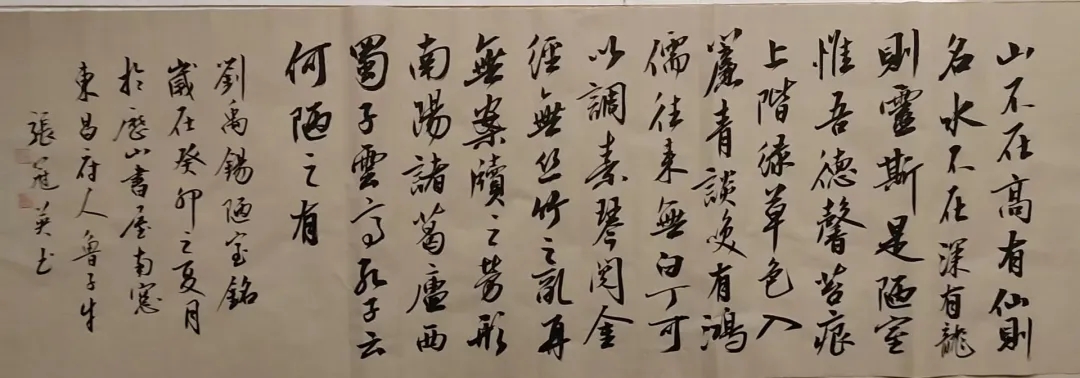 山不在高有仙則
名水不在深有龍
則靈斯是陋室
惟吾德馨苔痕
上階綠草色入
簾青談笑有鴻
儒往来無白丁可
以調素琴閱金
經無丝竹之亂耳
無案牘之勞形
南陽諸葛廬西
蜀子雲亭孔子云
何陋之有
劉禹錫陋室銘
歲在癸卯之夏月
於歷山書屋南窓
東昌府人魯子牛
張冠英书